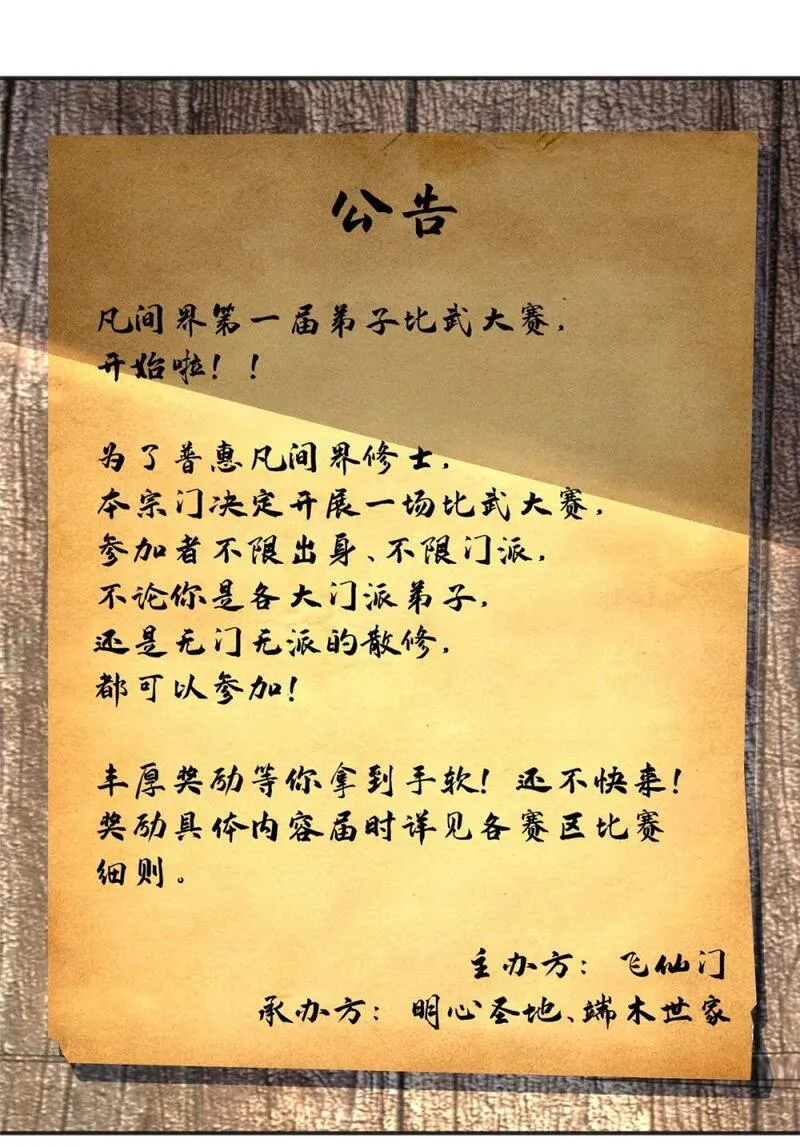 公告
凡间界第一届弟子比武大赛，
开始啦！！
为了普惠凡间界修士，
本宗门决定开展一场比武大赛，
参加者不限出身、不限门派，
不论你是各大门派弟子，
还是无门无派的散修，
都可以参加！
丰厚奖励等你拿到手软！还不快来！
奖励具体内容届时详见各赛区比赛
细则。
主办方：飞仙门
承办方：明心圣地、端木世家